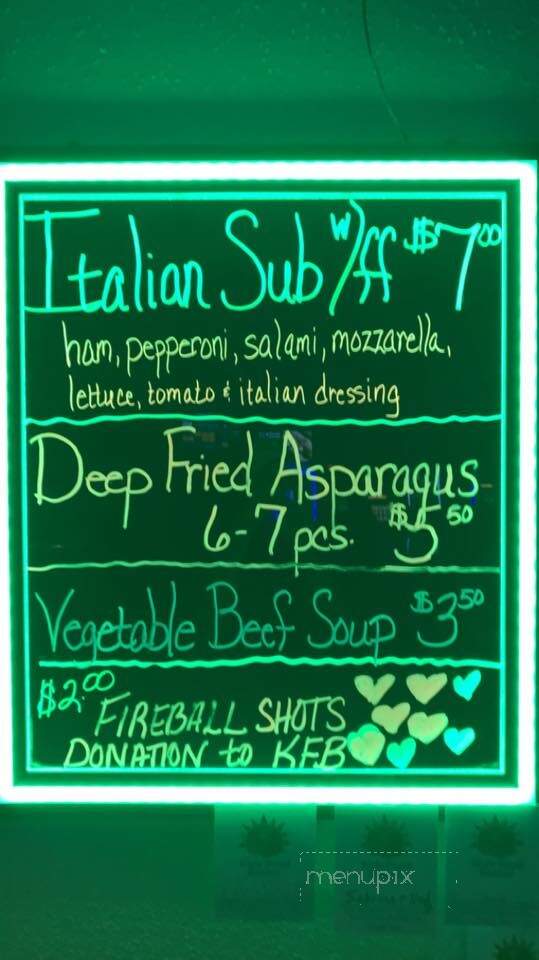 Italian Sub w/ff $7.00
ham, pepperoni, salami, mozzarella,
lettuce, tomato & italian dressing
Deep Fried Asparagus
6-7 pcs. $5.50
Vegetable Beef Soup $3.50
$2.00
FIREBALL SHOTS
DONATION to KFB
menupix